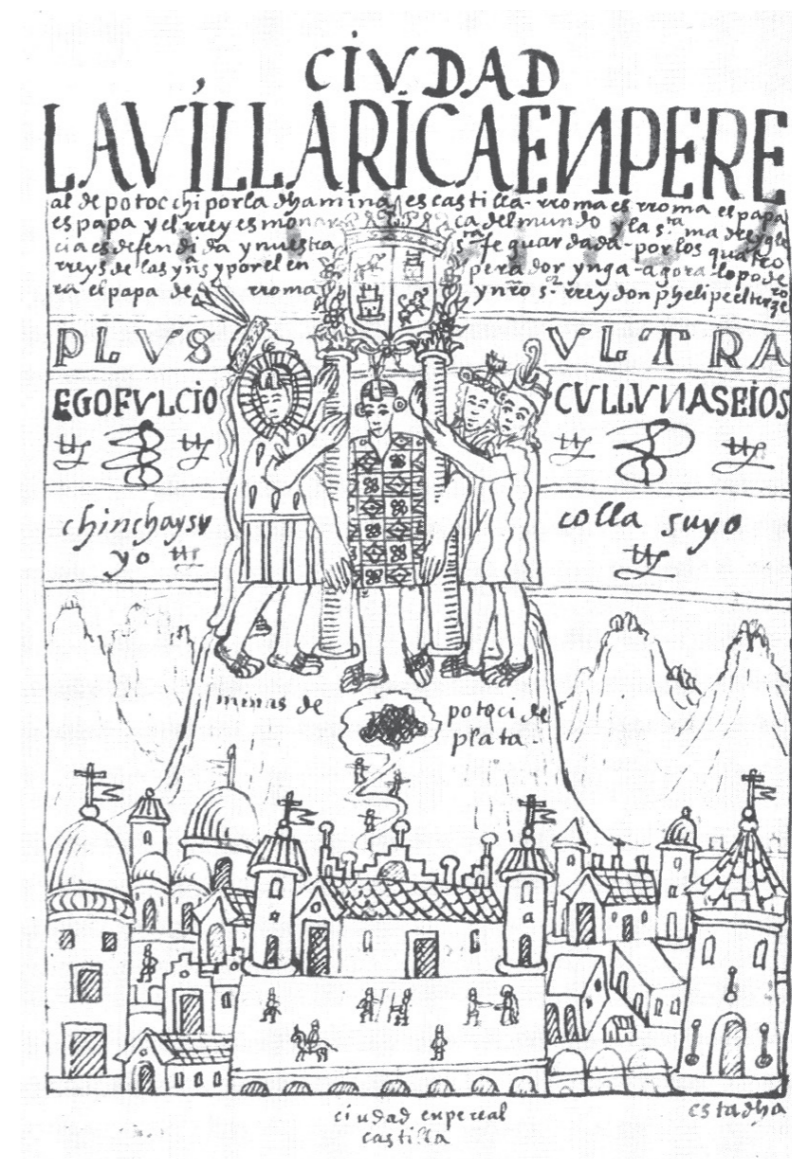 CIVDAD
LAVÍLLARICAENPERE
al de potocchi por la dha mina es castilla - rroma es rroma el papa
es papa y el rrey es monarca del mundo y la s.ta madre ygle
cia es defendida y nuestra s.ta fe guardada - por los quatro
rreys de las yns y por el enperador ynga - agora lo pode
ra el papa de rroma y nro s.r rrey don phelipe el terze
ro
PLVS VLTRA
EGOFVLCIO CVLLVNASEIOS
chinchaysu
yo
colla suyo
minas de potoci de
plata
ciudad enpereal
castilla
esta dha